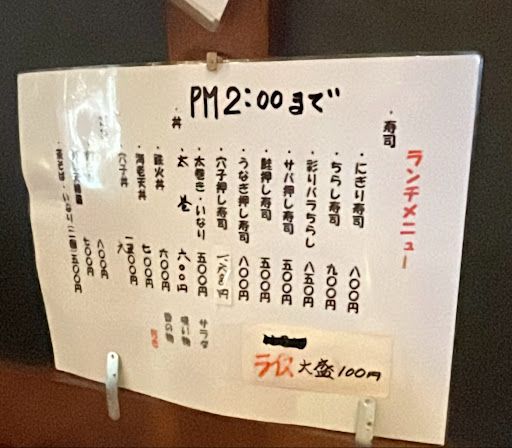 PM2:00まで
ランチメニュー
・寿司
・にぎり寿司 八〇〇円
・ちらし寿司 九〇〇円
・彩りバラちらし 八五〇円
・サバ押し寿司 五〇〇円
・鮭押し寿司 五〇〇円
・うなぎ押し寿司 八〇〇円
・穴子押し寿司
・太巻き・いなり 五〇〇円
・太巻 六〇〇円
・丼
・鉄火丼 六〇〇円
・海老天丼 七〇〇円
・穴子丼
八〇〇円
七〇〇円
・茶そば・いなり(二個)五〇〇円
サラダ
吸い物
ライス 大盛100円